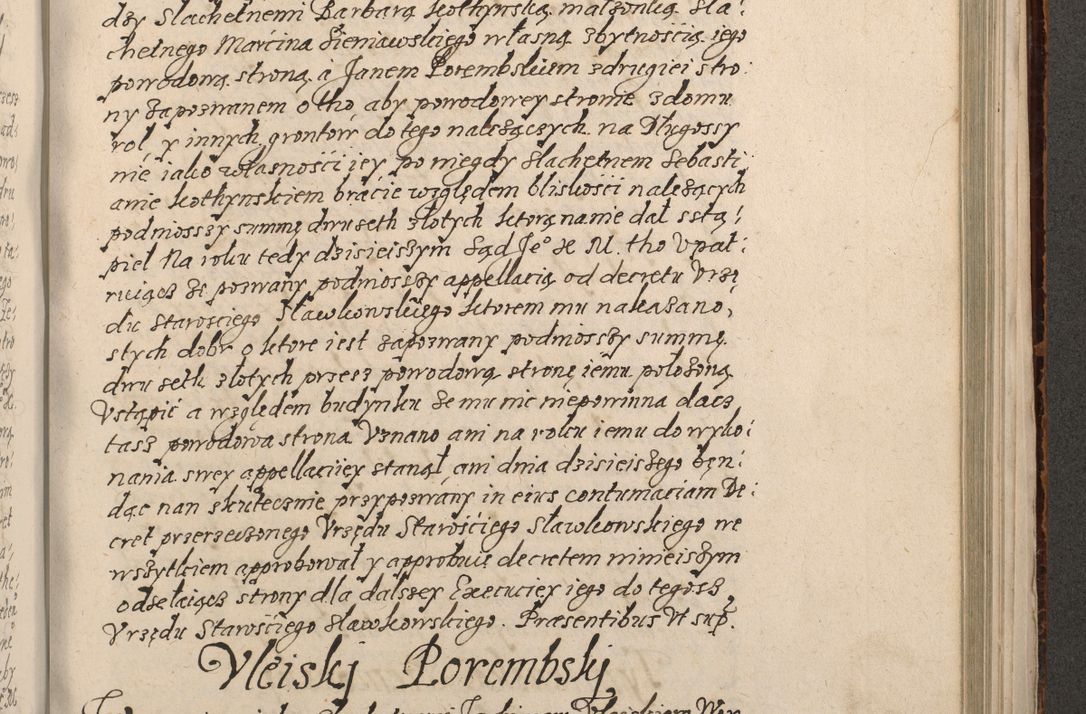 dzy slachetnemi Barbarą Kothynską małzonką sla:
chetnego Marcina Sieniawskiego własną zbytnoscią iego
powodową stroną á Janem Porembskiem z drugiei stro:
ny zapoznanem o tho aby powodowey stronie z domu
rol y innych grontow do tego nalezączych na Dlugossy
nie iako własności iey po niegdy slachetnem Sebasti
anie Kothynskiem bracie względem bliskosći nalezących
podniosszy summę dwu seth złotych ktorą na nie dał ssta:
piel Na roku tedy dzisieiszym Sąd Je° K M. tho Vpat:
ruiącz ze pozwany podniosszy appellacią od decretu Vrzę
du Starosciego Sławkowskiego ktorem mu nakazano,
s tych dobr o ktore iest zapozwany podniosszy summę
dwu seth złotych przesz powodową stronę iemu połozoną
Vstąpić a względem budynku ze mu nic niepowinna dacz
tasz powodowa strona Vznano ani na roku iemu do wyko:
nania swey appellaciiey stanął ani dnia dzisieiszego bęn:
dąc nan skutecznie przypozwány in eius contumaciam De:
cret przerzeczonego Vrzędu Starośćiego Sławkowskiego we
wszytkiem approbował y approbuie decretem ninieiszym
odsełaiącz strony dla dalszey Execuciey iego do tegosz
Vrzędu Starosćiego Sławkowskiego. Præsentibus Vt sup.
Vleiskj Porembskj